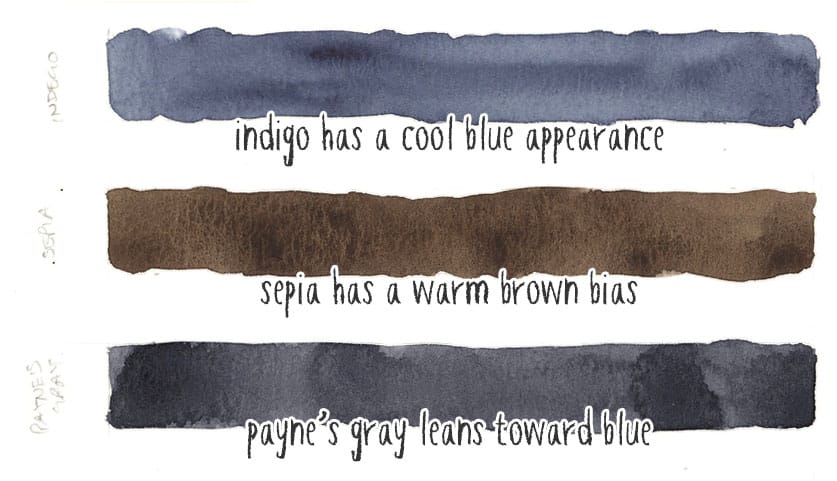 INDEGO
indigo has a cool blue appearance
SEPIA
sepia has a warm brown bias
PAYNE'S
GRAY
payne's gray leans toward blue